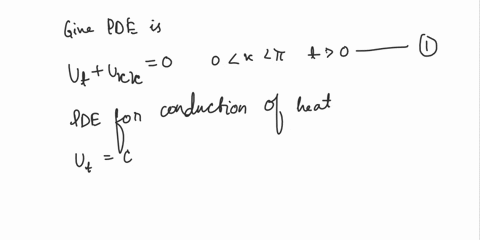 Give PDE is
U_t + U_xx = 0 0 < x < π t > 0 —— ①
PDE for conduction of heat
U_t = c